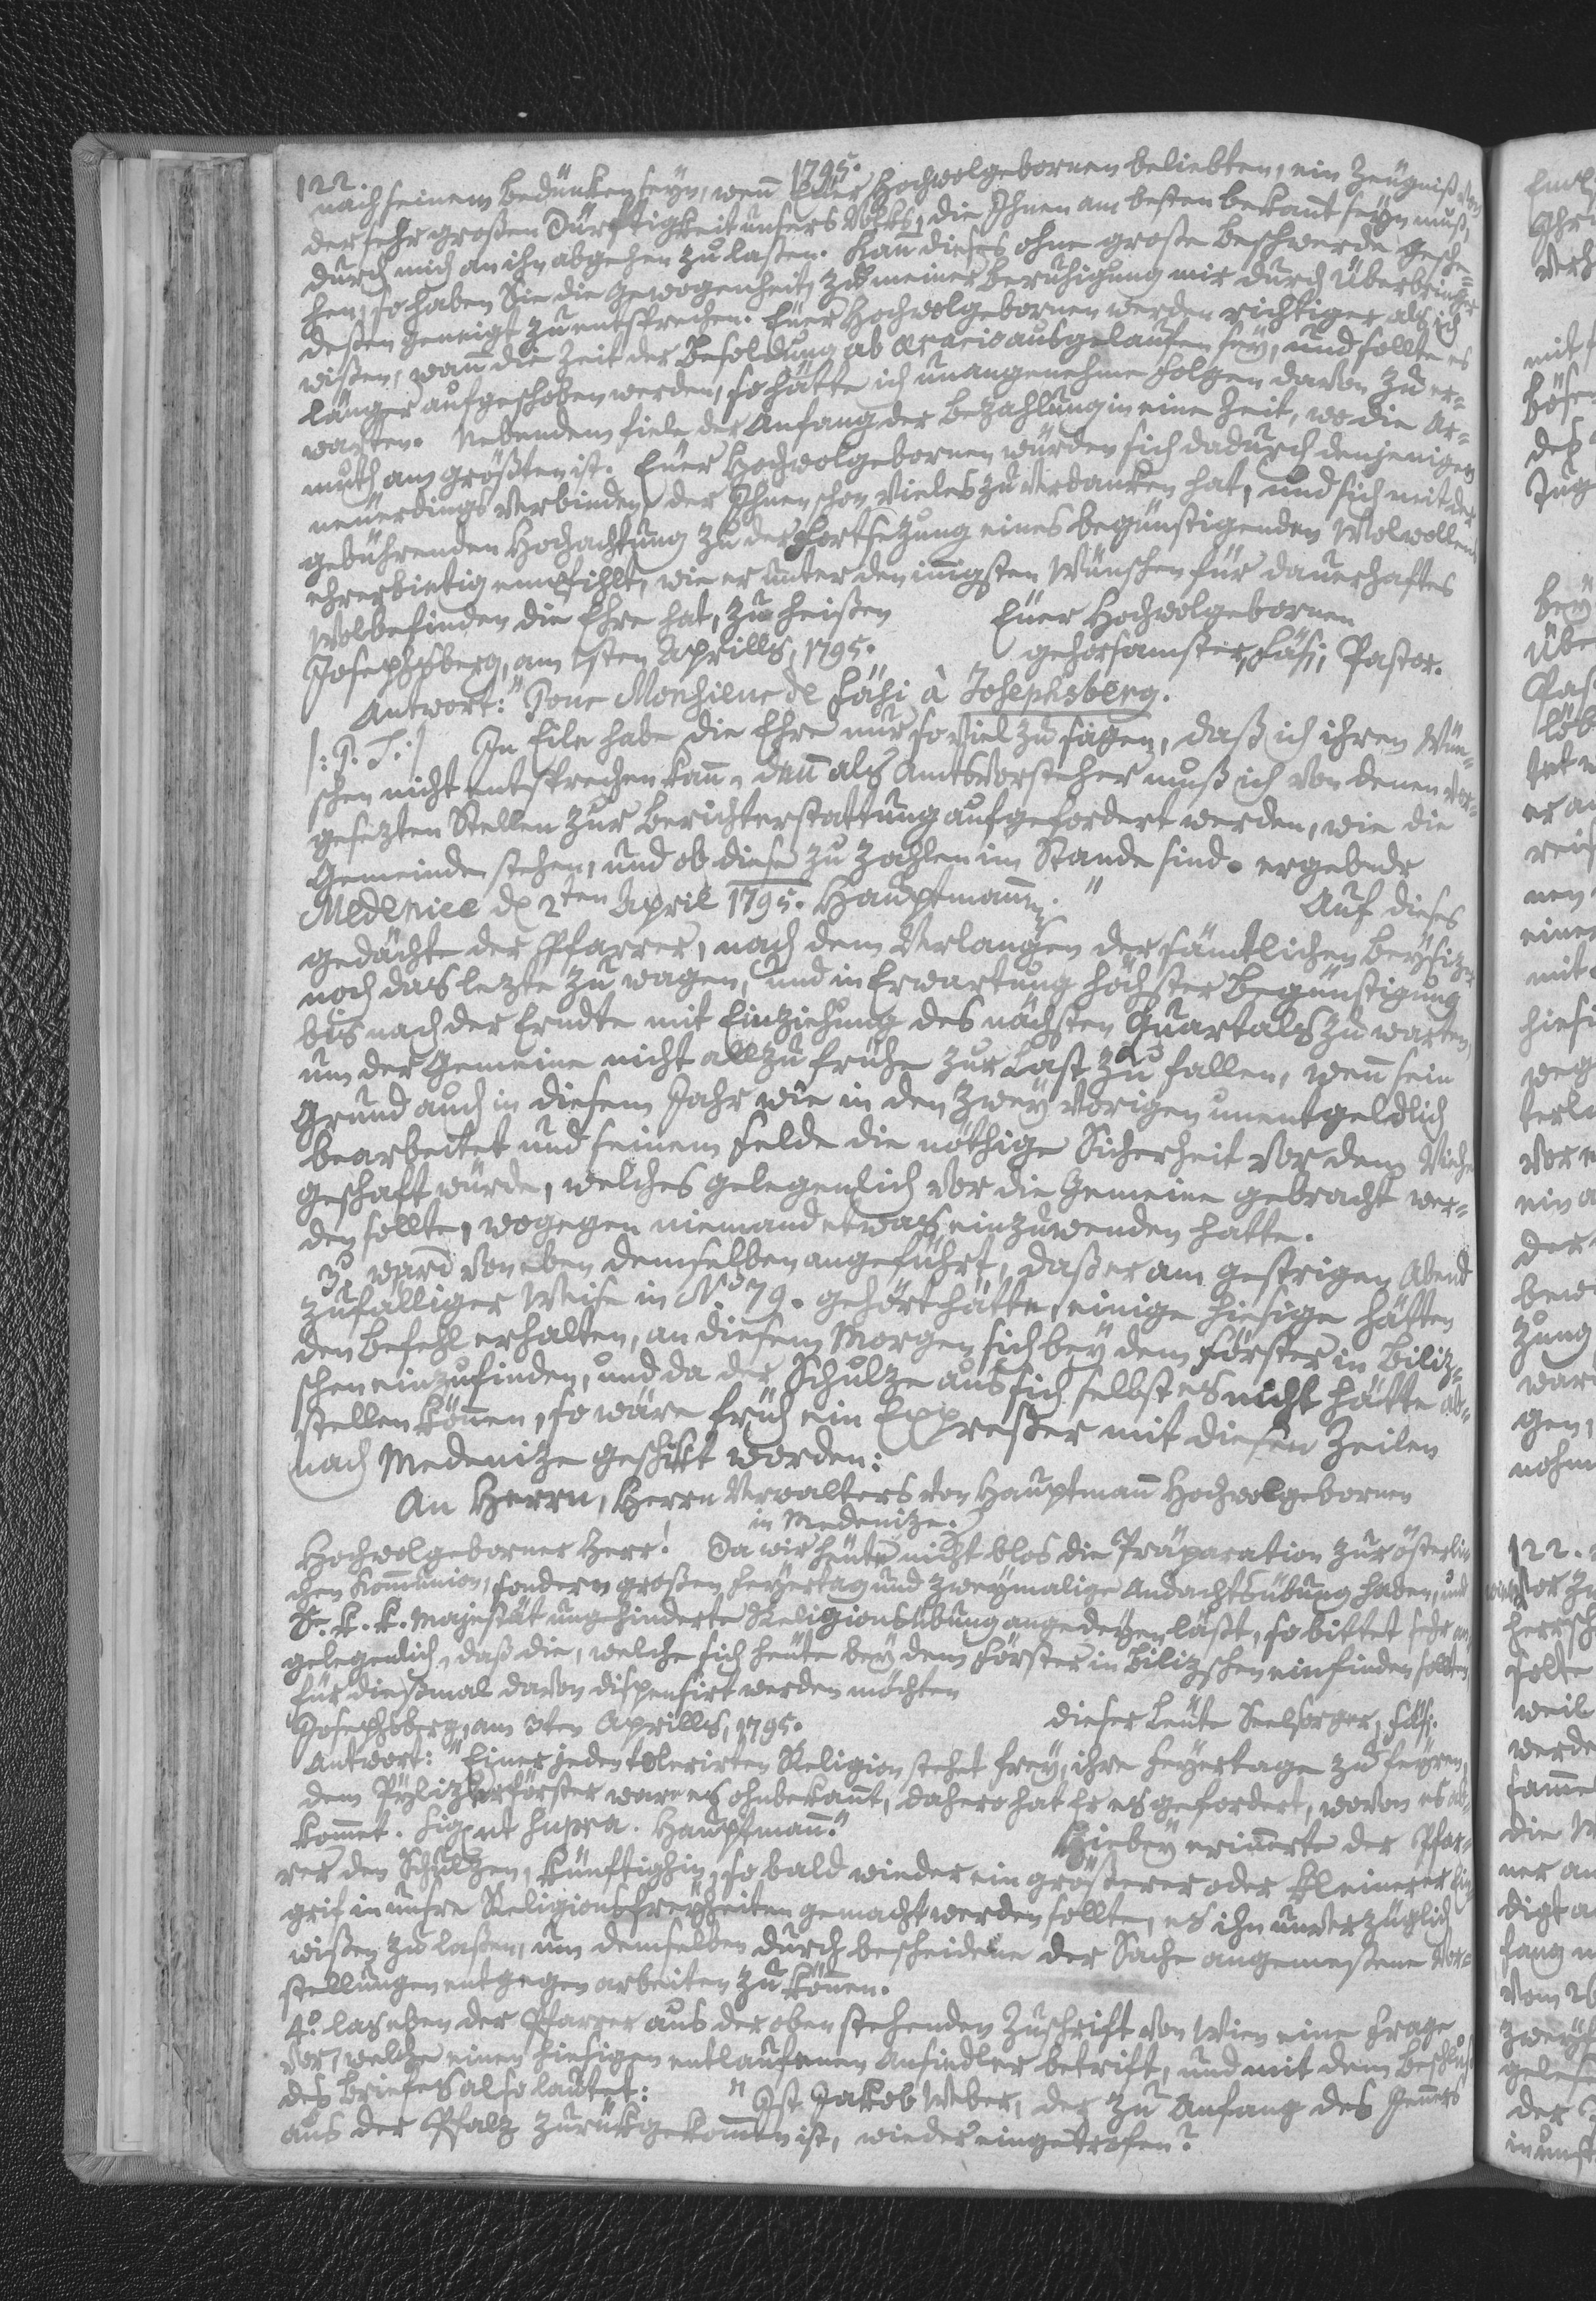 122. 1795.
nach seinem Bedünken seyn, wenn Euer Hochwolgebornen beliebten, ein Zeügniß von
der sehr großen Dürftigkeit unsers Volks, die Ihnen am besten bekant seyn muß,
durch mich an ihn abgehen zu laßen. Kan dieses ohne große Beschwerde gesche=
hen, so haben Sie die Gewogenheit, zu meiner Beruhigung mir durch Überbringer
deßen geneigt zu entsprechen. Euer Hochwolgebornen werden richtiger als ich
wißen, wann die Zeit der Besoldung ab Aerario ausgelaufen sey, und sollte es
länger aufgeschoben werden, so hätte ich unangenehme Folgen davon zu er=
warten. Nebendem fiele der Anfang der Bezahlung in eine Zeit, wo die Ar=
muth am größten ist. Euer Hochwolgebornen würden sich dadurch denjenigen
neüerdings verbinden, der Ihnen schon vieles zu verdanken hat, und sich mit der
gebührenden Hochachtung zu der Fortsetzung eines begünstigenden Wolwollens
ehrerbietig empfihlt, wie er unter den innigsten Wünschen für dauerhaftes
Wolbefinden die Ehre hat, zu heißen Euer Hochwolgebornen
Josephsberg, am 1sten Aprills, 1795. gehorsamster, Fäsi, Pastor.
Antwort: "Pour Monsieur de Fäsi à Josephsberg.
/: P. T. :/ In Eile habe die Ehre nur so viel zu sagen, daß ich ihren Wün=
schen nicht entsprechen kann, denn als Amtsvorsteher muß ich von denen vor=
gesezten Stellen zur Berichterstattung aufgefordert werden, wie die
Gemeinden stehen, und ob diese zu zahlen im Stande sind. ergebenster
Medenice d 2ten April 1795. Hauptmann." Auf dieses
gedächte der Pfarrer, nach dem Verlangen der sämtlichen Beysizer
noch das lezte zu wagen, und in Erwartung höchster Begünstigung
bis nach der Erndte mit Einziehung des nächsten Quartals zu warten,
um der Gemeine nicht allzu frühe zur Last zu fallen, wenn sein
Grund auch in diesem Jahr wie in den zwey vorigen unentgeldlich
bearbeitet und seinem Felde die nöthige Sicherheit vor dem Viehe
geschaft würde, welches gelegenlich vor die Gemeine gebracht wer=
den sollte, wogegen niemand etwas einzuwenden hatte.
3º. ward von eben demselben angeführt, daß er am gestrigen Abend
zufälliger Weise in No 79. gehört hätte, einige hiesige hätten
den Befehl erhalten, an diesem Morgen sich bey dem Förster in Biliz=
schen einzufinden, und da der Schulze aus sich selbst es nicht hätte ab=
stellen können, so wäre früh ein Expreßer mit diesen Zeilen
nach Medenitze geschikt worden:
An Herrn, Herrn Verwalters von Hauptmann Hochwolgebornen
in Medenitze.
Hochwolgeborner Herr! Da wir heüte nicht blos die Präparation zur österli=
chen Kommunion, sondern großen Feyertag und zweymalige Andachtsübung haben, und
Sr. K. K. Majestät ungehinderte Religionsübung angedeyen läßt, so bittet sehr an=
gelegenlich, daß die, welche sich heüte bey dem Förster in Bilizschen einfinden sollten,
für dießmal davon dispensirt werden möchten
Josephsberg, am 3ten Aprills, 1795. dieser Leüte Seelsorger, Fäsi.
Antwort: "Einer jeden tolerirten Religion stehet frey, ihre Feyertage zu feyren,
dem Pylizer Förster ware es ohnbekannt, dahero hat Er es gefordert, wovon es ab=
kommt. Sig. ut supra. Hauptmann." Hiebey erinnerte der Pfar=
rer den Schulzen, künftighin, so bald wieder ein größerer oder kleinerer Ein=
grif in unsre Religionsfreyheiten gemacht werden sollte, es ihn unverzüglich
wißen zu laßen, um demselben durch bescheidene der Sache angemeßene Vor=
stellungen entgegen arbeiten zu können.
4º. las eben der Pfarrer aus der oben stehenden Zuschrift von Wien eine Frage
vor, welche einen hiesigen entlaufenen Ansiedler betrift, und mit dem Beschluß
des Briefes also lautet: "Ist Jakob Weber, der zu Anfang des Jenners
aus der Pfalz zurükgekommen ist, wieder eingetrofen?